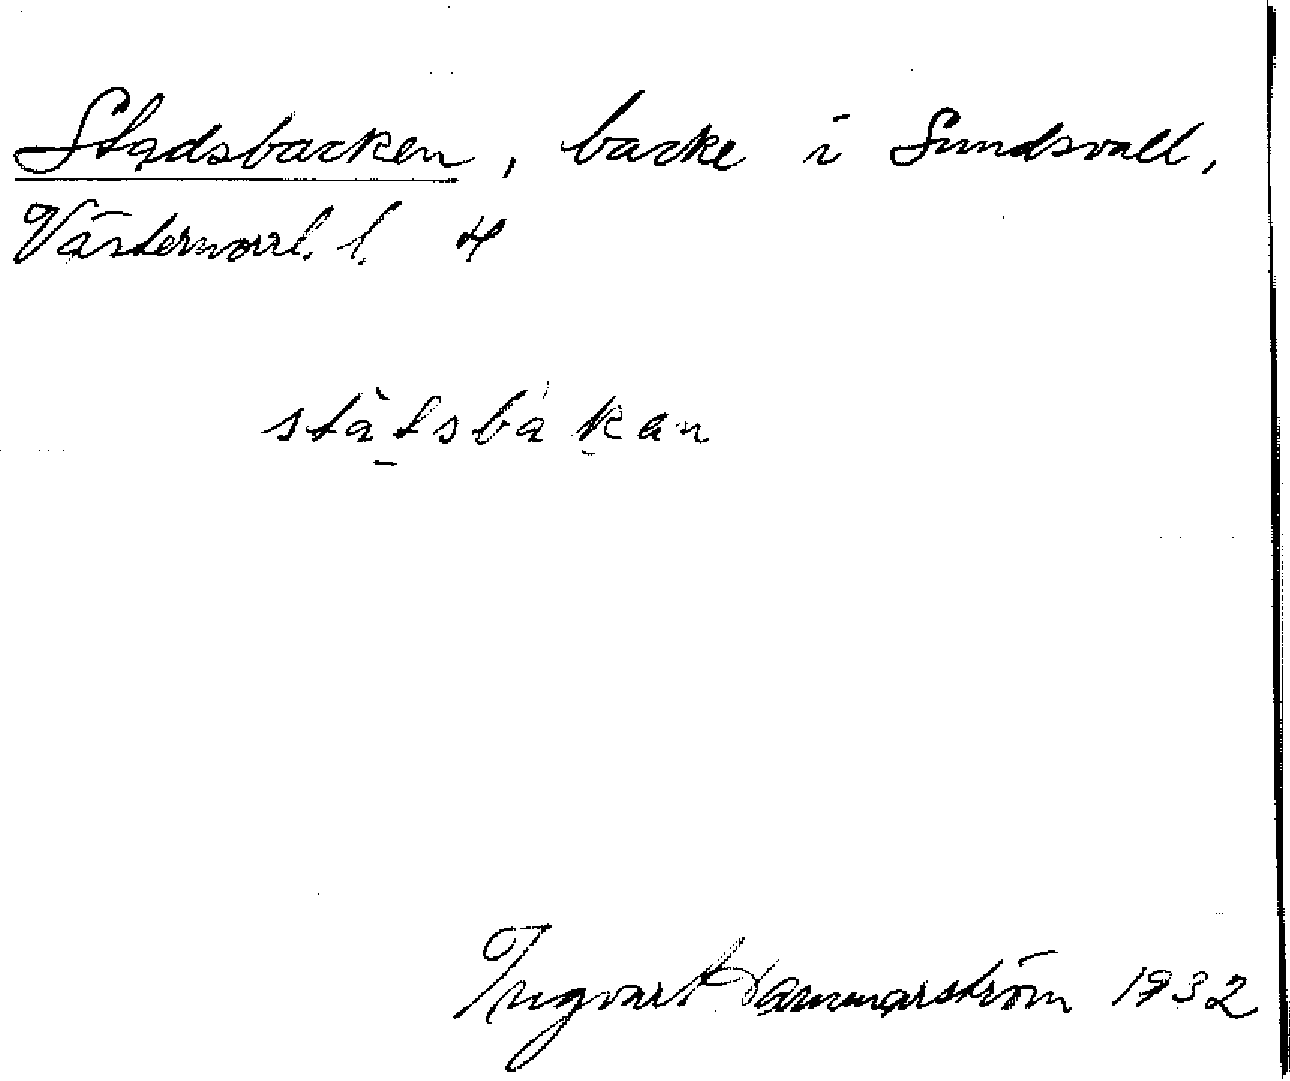 Stadsbacken, backe i Sundsvall,
Västernorrl. l. 4
stàtsbàkan
Ingvar Hammarström 1932